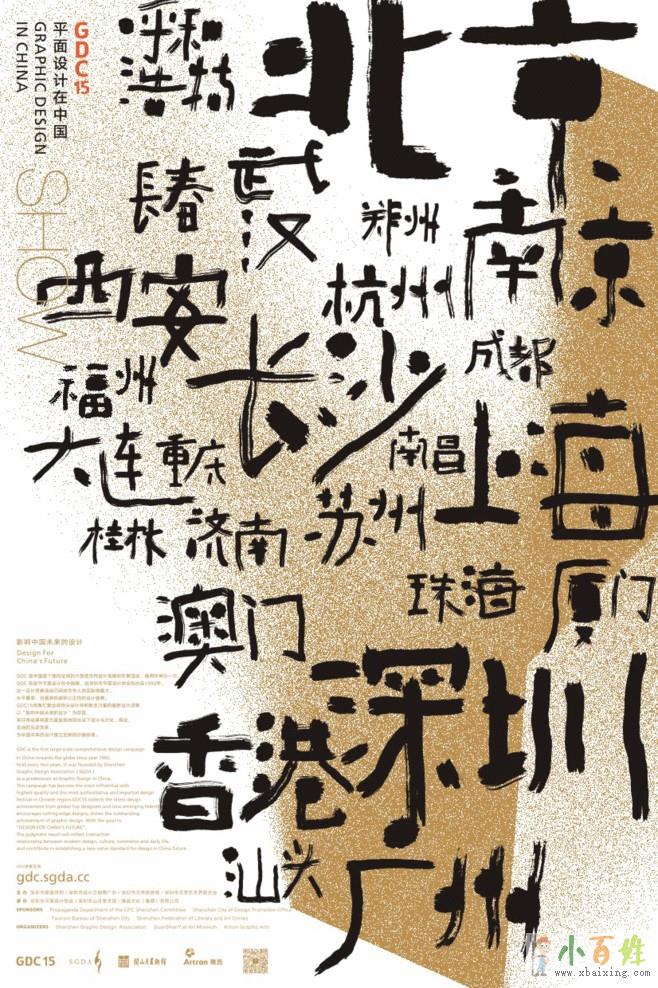 GDC15
平面设计在中国
GRAPHIC DESIGN
IN CHINA
SHOW
呼和
浩特
北京
長春
武汉
郑州
南京
西安
杭州
长沙
成都
福州
大连
重庆
南昌
上海
桂林
济南
苏州
珠海
厦门
澳门
深圳
香港
汕头
广州
影响中国未来的设计
Design For
China's Future
GDC is the first large-scale comprehensive design campaign
in China towards the globe since year 1992,
held every two years. It was founded by Shenzhen
Graphic Design Association ( SGDA )
as a predecessor at Graphic Design in China.
This campaign has become the most influential with
highest quality and the most authoritative and impartial design
festival in Chinese region.GDC15 collects the latest design
achievement from global top designers and new emerging talents
encourages cutting-edge designs, shows the outstanding
achievement of graphic design. With the goal to
"DESIGN FOR CHINA'S FUTURE",
The judgment result will reflect interaction
relationship between modern design, culture, commerce and daily life,
and contribute in establishing a new value standard for design in China future.
gdc.sgda.cc
SPONSORS Propaganda Department of the CPC Shenzhen Committee Shenzhen City of Design Promotion Office
Tourism Bureau of Shenzhen City Shenzhen Federation of Literary and Art Circles
ORGANIZERS Shenzhen Graphic Design Association GuanShanYue Art Museum Artron Graphic Arts
GDC15 SGDA 关山月美术馆 Artron 雅昌
小百姓
www.xbaixing.com